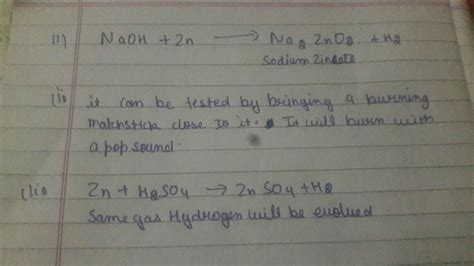 (i) NaOH + Zn ⟶ Na2ZnO2 + H2
Sodium Zincate
(ii) it can be tested by bringing a burning
matchstick close to it. It will burn with
a pop sound.
(iii) Zn + H2SO4 → ZnSO4 + H2
Same gas Hydrogen will be evolved